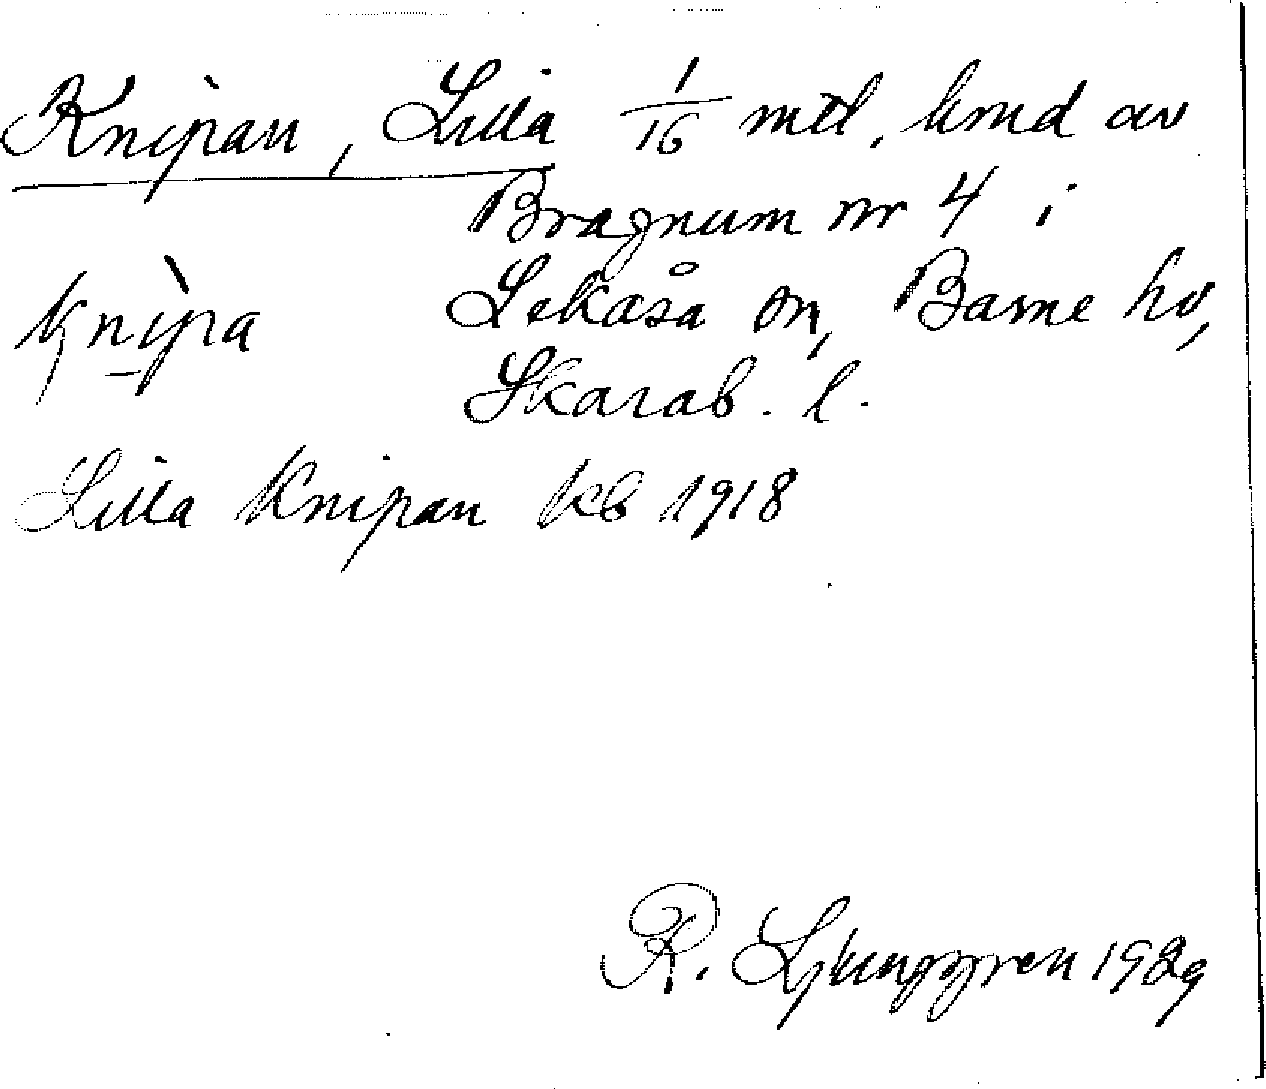 Knipan, Lilla 1/16 mtl. hmd av
Bragnum nr 4 i
knìpa Lekåsa sn, Barne hd,
Skarab. l.
Lilla Knipan kb 1918
R. Ljunggren 1929